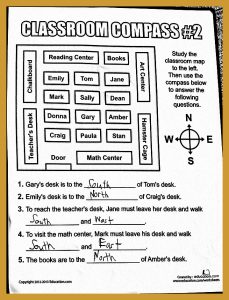 CLASSROOM COMPASS #2
Study the
classroom map
to the left.
Then use the
compass below
to answer the
following
questions.
Reading Center
Books
Chalkboard
Art Center
Emily
Tom
Jane
Mark
Sally
Dean
Donna
Gary
Amber
Craig
Paula
Stan
Teacher's Desk
Hamster Cage
Door
Math Center
N
W
E
S
1. Gary's desk is to the South of Tom's desk.
2. Emily's desk is to the North of Craig's desk.
3. To reach the teacher's desk, Jane must leave her desk and walk
South and West.
4. To visit the math center, Mark must leave his desk and walk
South and East.
5. The books are to the North of Amber's desk.
Copyright 2012-2013 Education.com
Created by: education.com
www.education.com/worksheets